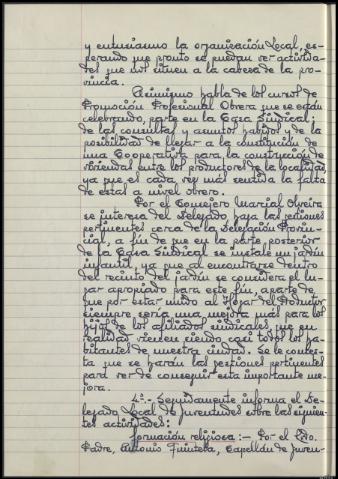 y entusiasmo la organización Local, es-
perando que pronto se puedan ver activida-
des que nos sitúen a la cabeza de la pro-
vincia.
Asimismo habla de los cursos de
Promoción Profesional Obrera que se están
celebrando, parte en la Casa Sindical;
de las consultas y asuntos habidos y de la
posibilidad de llegar a la constitución de
una Cooperativa para la construcción de
viviendas entre los productores de la localidad,
ya que es cada vez más sentida la falta
de estas a nivel obrero.
Por el Consejero Marcial Oliveira
se interesa del Delegado haga las gestiones
pertinentes cerca de la Delegación Provin-
cial, a fin de que en la parte posterior
de la Casa Sindical se instale un jardín
infantil, ya que al encontrarse dentro
del recinto del jardín se considera el lu-
gar apropiado para este fin, aparte de
que por estar unido al Hogar del Productor
siempre sería una mejora más para los
hijos de los afiliados sindicales que en
realidad vienen siendo casi todos los ha-
bitantes de nuestra ciudad. Se le contes-
ta que se harán las gestiones pertinentes
para ver de conseguir esta importante me-
jora.
4º.- Seguidamente informa el De-
legado Local de Juventudes sobre las siguien-
tes actividades:
Formación religiosa:- Por el Rdo.
Padre, Antonio Quintela, Capellán de Juven-